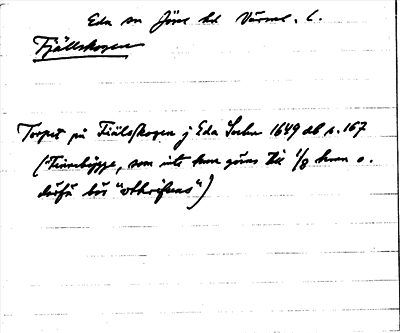 Eda sn Jöse hd Värml. l.
Fjällskogen
Torpet på Fiälsskogen j Eda Sochn 1649 ab s. 167
(Finnebygge, som inte kan göras till 1/8 hman o.
därför blir "utkrifvens")